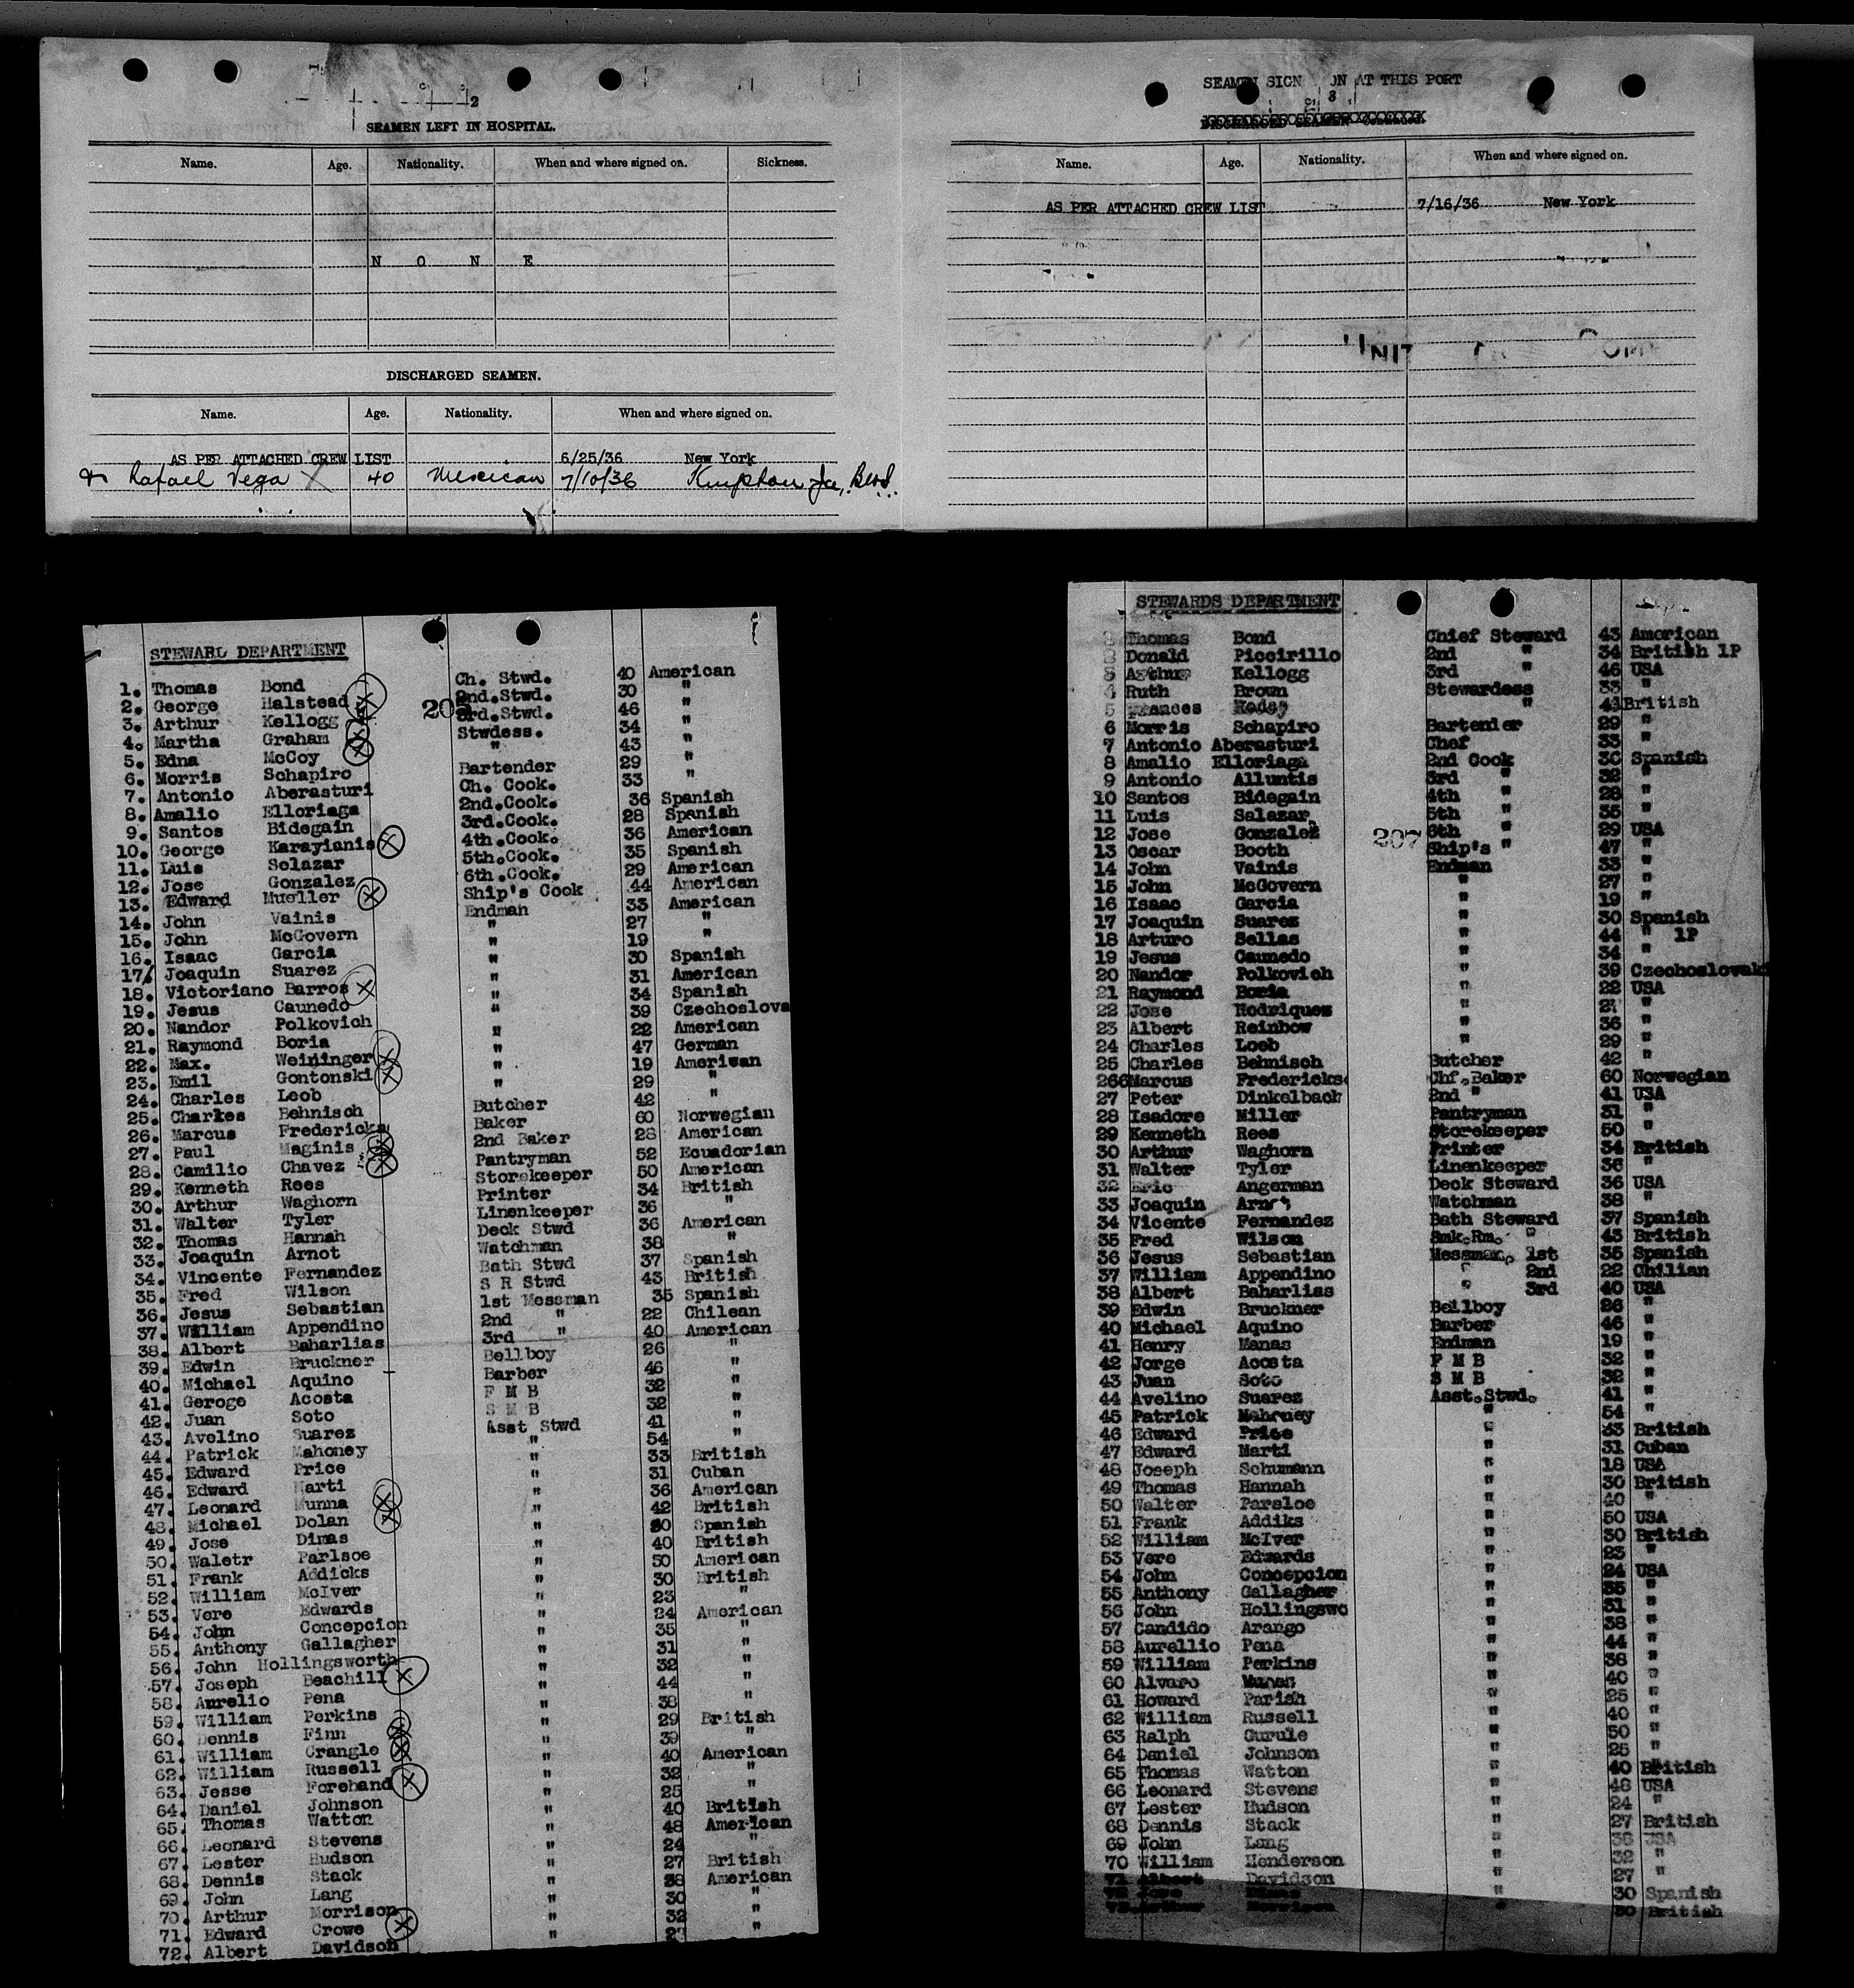 2
SEAMEN LEFT IN HOSPITAL.
Name. Age. Nationality. When and where signed on. Sickness.
N O N E
DISCHARGED SEAMEN.
Name. Age. Nationality. When and where signed on.
AS PER ATTACHED CREW LIST 6/25/36 New York
Rafael Vega X 40 Mexican 7/10/36
SEAMEN SIGN ON AT THIS PORT
3
DISCHARGED SEAMEN
Name. Age. Nationality. When and where signed on.
AS PER ATTACHED CREW LIST 7/16/36 New York
STEWARD DEPARTMENT
1. Thomas Bond Ch. Stwd. 40 American
2. George Halstead 2nd.Stwd. 30 "
3. Arthur Kellogg 3rd.Stwd. 46 "
4. Martha Graham Stwdess. 34 "
5. Edna McCoy " 43 "
6. Morris Schapiro Bartender 29 "
7. Antonio Aberasturi Ch. Cook. 33 "
8. Amalio Elloriaga 2nd.Cook. 36 Spanish
9. Santos Bidegain 3rd.Cook. 28 Spanish
10. George Karayianis 4th.Cook. 36 American
11. Luis Solazar 5th.Cook. 35 Spanish
12. Jose Gonzalez 6th.Cook. 29 American
13. Edward Mueller Ship's Cook 44 American
14. John Vainis Endman 33 American
15. John McGovern " 27 "
16. Isaac Garcia " 19 "
17. Joaquin Suarez " 30 Spanish
18. Victoriano Barros " 31 American
19. Jesus Caunedo " 34 Spanish
20. Nandor Polkovich " 39 Czechoslova
21. Raymond Boria " 22 American
22. Max. Weininger " 47 German
23. Emil Gontonski " 19 American
24. Charles Loeb " 29 "
25. Charkes Behnisch Butcher 42 "
26. Marcus Fredericks Baker 60 Norwegian
27. Paul Maginis 2nd Baker 28 American
28. Camilio Chavez Pantryman 52 Ecuadorian
29. Kenneth Rees Storekeeper 50 American
30. Arthur Waghorn Printer 34 British
31. Walter Tyler Linenkeeper 36 "
32. Thomas Hannah Deck Stwd 36 American
33. Joaquin Arnot Watchman 38 "
34. Vincente Fernandez Bath Stwd 37 Spanish
35. Fred Wilson S R Stwd 43 British
36. Jesus Sebastian 1st Messman 35 Spanish
37. William Appendino 2nd " 22 Chilean
38. Albert Baharlias 3rd " 40 American
39. Edwin Bruckner Bellboy 26 "
40. Michael Aquino Barber 46 "
41. Geroge Acosta F M B 32 "
42. Juan Soto S M B 32 "
43. Avelino Suarez Asst Stwd 41 "
44. Patrick Mahoney " 54 "
45. Edward Price " 33 British
46. Edward Marti " 31 Cuban
47. Leonard Munna " 36 American
48. Michael Dolan " 42 British
49. Jose Dimas " 30 Spanish
50. Waletr Parlsoe " 40 British
51. Frank Addicks " 50 American
52. William McIver " 30 British
53. Vere Edwards " 23 "
54. John Concepcion " 24 American
55. Anthony Gallagher " 35 "
56. John Hollingsworth " 31 "
57. Joseph Beachill " 32 "
58. Aurelio Pena " 44 "
59. William Perkins " 38 "
60. Dennis Finn " 29 British
61. William Crangle " 39 "
62. William Russell " 40 American
63. Jesse Forehand " 32 "
64. Daniel Johnson " 25 "
65. Thomas Watton " 40 British
66. Leonard Stevens " 48 American
67. Lester Hudson " 24 "
68. Dennis Stack " 27 British
69. John Lang " 38 American
70. Arthur Morrison " 30 "
71. Edward Crowe " 32 "
72. Albert Davidson " 27 "
STEWARDS DEPARTMENT
Thomas Bond Chief Steward 43 American
Donald Piccirillo 2nd " 34 British 1P
3 Arthur Kellogg 3rd " 46 USA
4 Ruth Brown Stewardess 33 "
5 Frances " 43 British
6 Morris Schapiro Bartender 29 "
7 Antonio Aberasturi Chef 33 "
8 Amalio Elloriaga 2nd Cook 36 Spanish
9 Antonio Alluntis 3rd " 32 "
10 Santos Bidegain 4th " 28 "
11 Luis Salazar 5th " 35 "
12 Jose Gonzalez 207 6th " 29 USA
13 Oscar Booth Ship's " 47 "
14 John Vainis Endman 33 "
15 John McGovern " 27 "
16 Isaac Garcia " 19 "
17 Joaquin Suarez " 30 Spanish
18 Arturo Sellas " 44 " 1P
19 Jesus Caunedo " 34 "
20 Nandor Polkovich " 39 Czechoslovak
21 Raymond Boria " 22 USA
22 Jose Rodriquez " "
23 Albert Reinbow " 36 "
24 Charles Loeb " 29 "
25 Charles Behnisch Butcher 42 "
266 Marcus Fredericks Chf.Baker 60 Norwegian
27 Peter Dinkelbach 2nd " 41 USA
28 Isadore Miller Pantryman 31 "
29 Kenneth Rees Storekeeper 50 "
30 Arthur Waghorn Printer 34 British
31 Walter Tyler Linenkeeper 36 "
32 Eric Angerman Deck Steward 36 USA
33 Joaquin Arnot Watchman 38 "
34 Vicente Fernandez Bath Steward 37 Spanish
35 Fred Wilson Smk.Rm. " 43 British
36 Jesus Sebastian Messman, 1st 35 Spanish
37 William Appendino " 2nd 22 Chilian
38 Albert Baharlias " 3rd 40 USA
39 Edwin Bruckner Bellboy 26 "
40 Michael Aquino Barber 46 "
41 Henry Manas Endman 19 "
42 Jorge Acosta F M B 32 "
43 Juan Soto S M B 32 "
44 Avelino Suarez Asst.Stwd. 41 "
45 Patrick Mahoney " 54 "
46 Edward Price " 33 British
47 Edward Marti " 31 Cuban
48 Joseph Schumann " 18 USA
49 Thomas Hannah " 30 British
50 Walter Parsloe " 40 "
51 Frank Addiks " 50 USA
52 William McIver " 30 British
53 Vere Edwards " 23 "
54 John Concepcion " 24 USA
55 Anthony Gallagher " 35 "
56 John Hollingswo " 31 "
57 Candido Arango " 38 "
58 Aurellio Pena " 44 "
59 William Perkins " 38 "
60 Alvaro " 40 "
61 Howard Parish " 25 "
62 William Russell " 40 "
63 Ralph Gurule " 50 "
64 Daniel Johnson " 25 "
65 Thomas Watton " 40 British
66 Leonard Stevens " 48 USA
67 Lester Hudson " 24 "
68 Dennis Stack " 27 British
69 John Lang " 38 USA
70 William Henderson " 32 "
71 Albert Davidson " 27 "
72 Jose Dimas " 30 Spanish
73 Arthur Morrison " 30 British